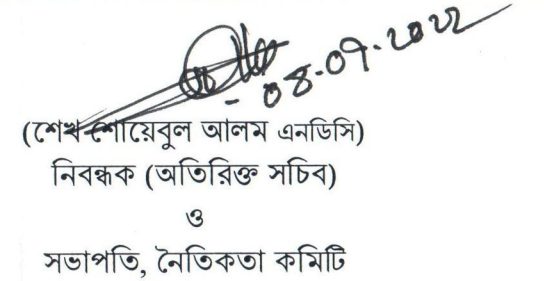 ০৪.০৭.২০২২
(শেখ শোয়েবুল আলম এনডিসি)
নিবন্ধক (অতিরিক্ত সচিব)
ও
সভাপতি, নৈতিকতা কমিটি